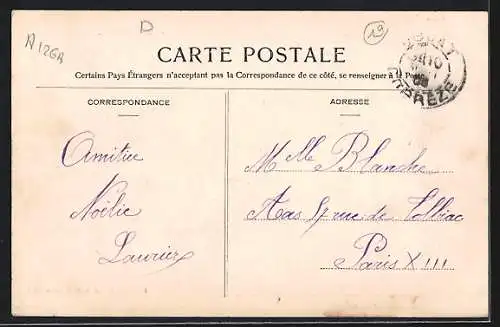 N126A
D
19
CARTE POSTALE
Certains Pays Étrangers n'acceptant pas la Correspondance de ce côté, se renseigner à la Poste
CORRESPONDANCE
ADRESSE
CORREZE
Amitiée
Noélie
Laurier
Mlle Blanche
rue de Tolbiac
Paris XIII